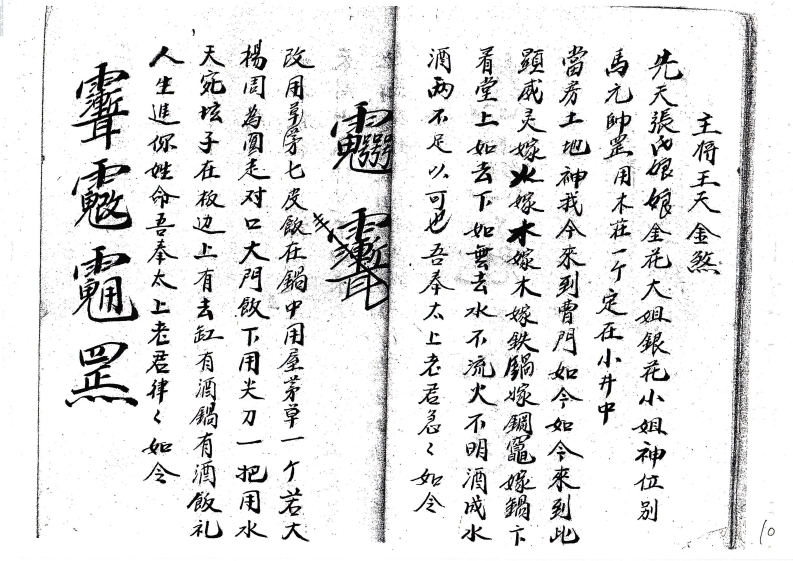 主将王天金煞
先天張氏娘娘金花大姐銀花小姐神位別
馬元帥罡用木莊一个定在小井中
當房土地神我今來到曹門如今如今來到此
顕威灵嫁火嫁水嫁木嫁鉄鍋嫁鋼竈嫁鍋下
看堂上如去下如雲去水不流火不明酒成水
酒两不足以可也吾奉太上老君急〻如令
改用茅七皮飯在鍋中用屋茅草一个若大
楊周為圓走对口大門飯下用尖刀一把用水
天宛坛子在板边上有去缸有酒鍋有酒飯礼
人生進你姓命吾奉太上老君律〻如令
10